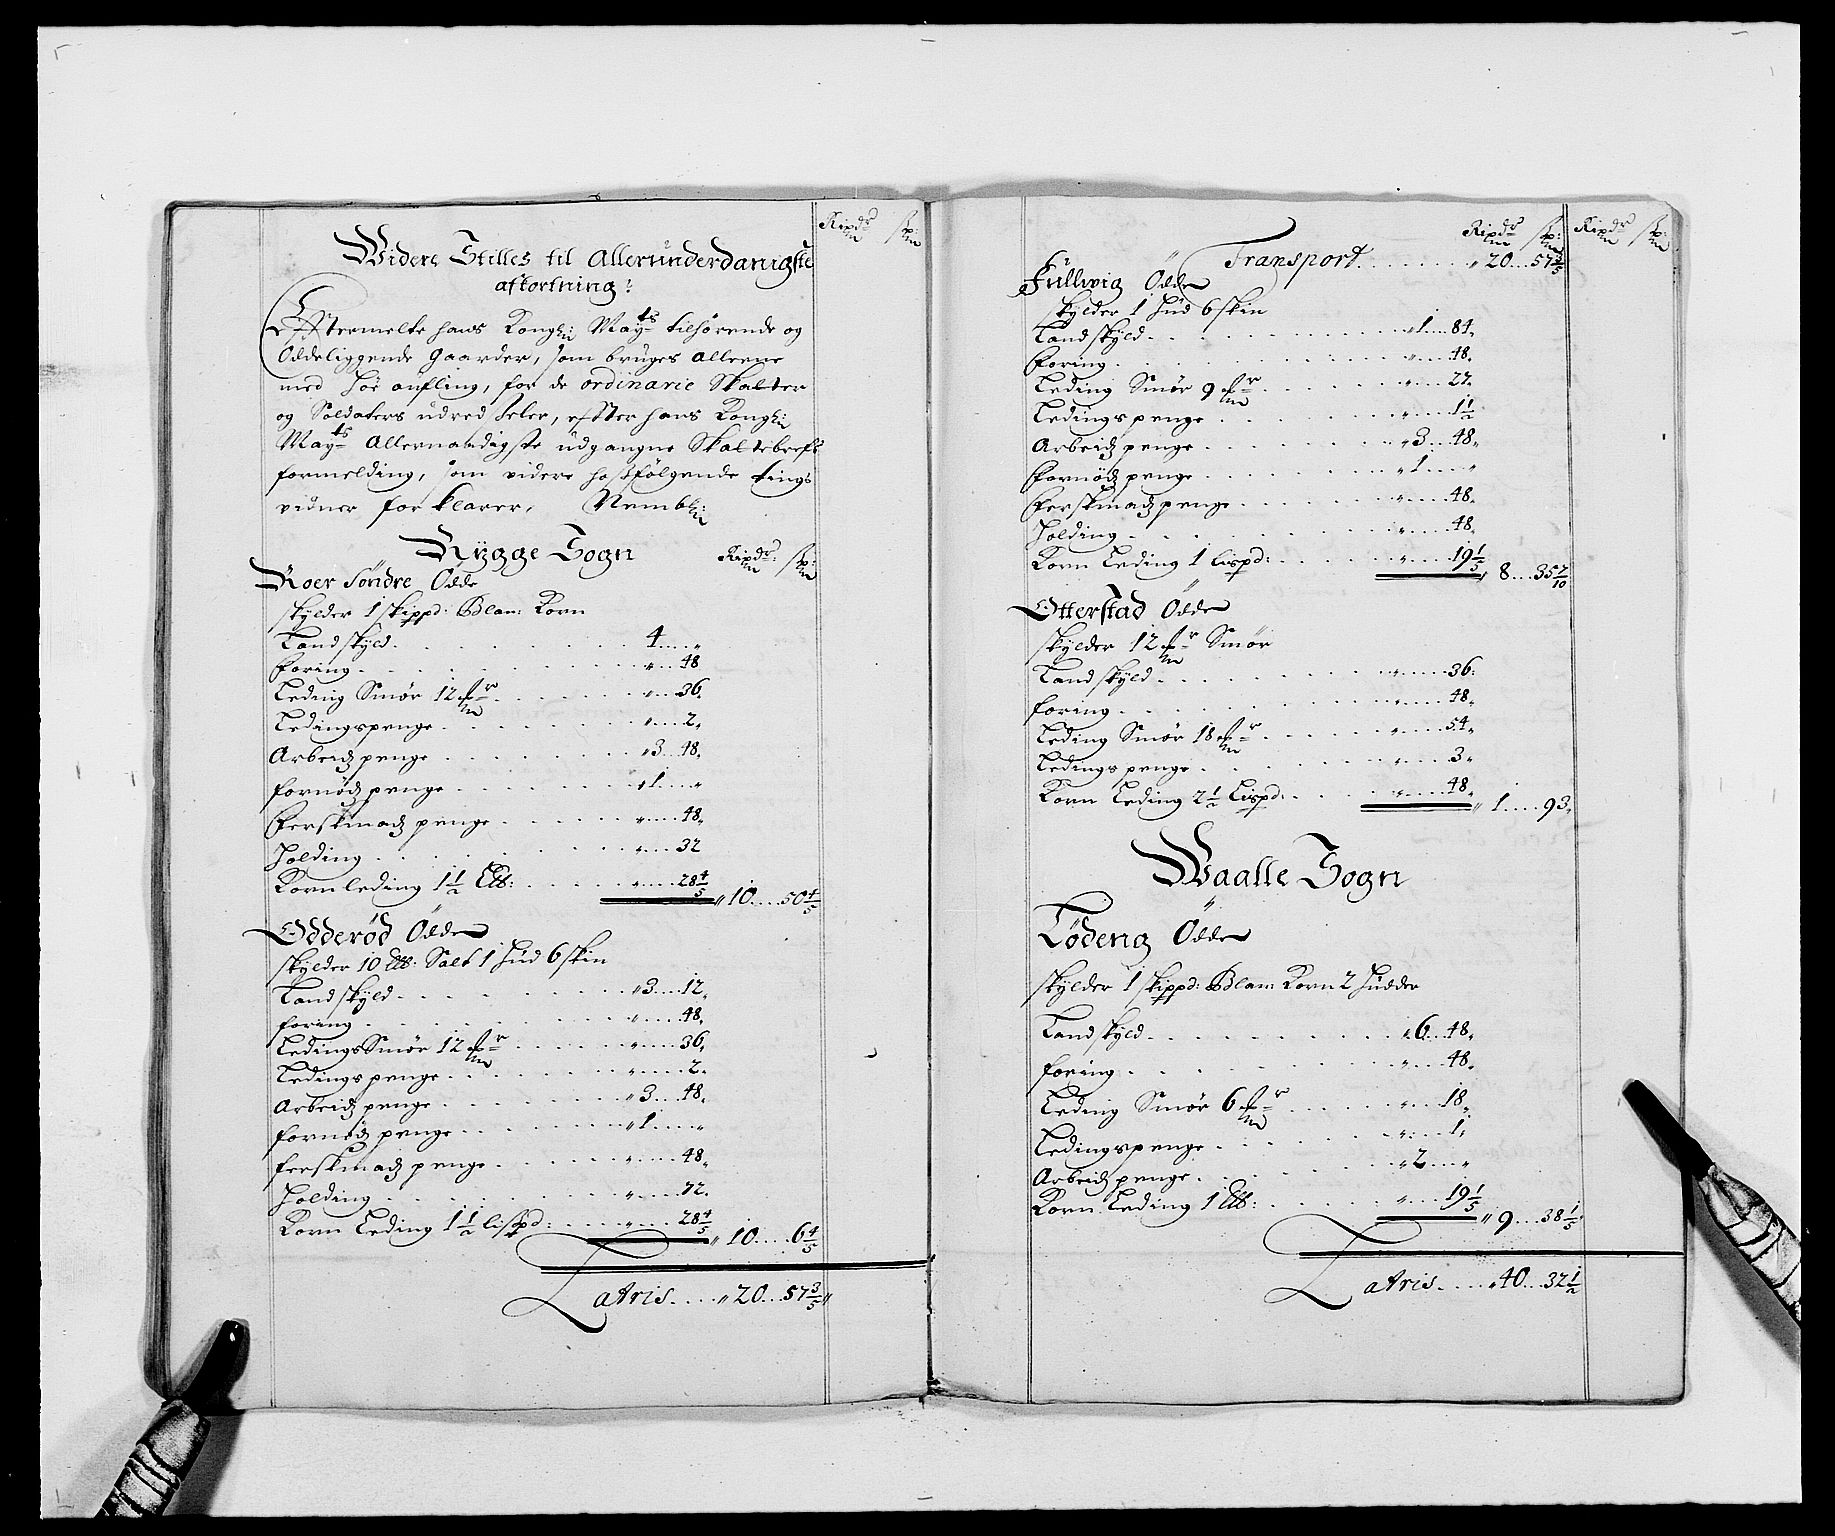 Ripdr ſp:
Widere Stilles til Allerunderdanigste
aftortning:
Effstermelte hans Kongl: Mayts tilhörende og
Ödeliggende Gaarder, som bruges alleene
med höe aufling, for de ordinarie Skatter
og Soldaters udredseler, effster hans Kongl:
Mayts Allernaadigste udgangne Skattebrefs
formelding, som videre hosfölgende tings
vidner forklarer, Nembl:
Rÿgge Sogn Ripdr: ſp:
Roer Söndre Öde
skÿlder 1 skippd: Blan: Korn
Landskÿld 4 "
Foring " 48
Leding Smör 12 mr " 36
Ledingspenge " 2
Arbeidz penge 3 48
fornödz penge 1 "
Ferskmadz penge " 48
Holding " 32
Kornleding 1 1/2 Ltt: " 28 4/5 10 50 4/5
Odderöd Öde
skÿlder 10 Ltt: Salt 1 Hud 6 skin
Landskÿld 3 12
foring " 48
Ledings Smör 12 mr " 36
Ledingspenge " 2
Arbeidz penge 3 48
fornödz penge 1 "
ferskmadz penge " 48
Holding " 72
Korn Leding 1 1/2 lispd: " 28 4/5 10 6 4/5
Latris 20 57 3/5
Ripdr ſp: Ripdr ſp:
Transport 20 57 3/5
Füllwig Öde
skÿlder 1 Hud 6 skin
Landskÿld 1 84
Foring " 48
Leding Smör 9 mr " 27
Ledingspenge " 1 1/2
Arbeidz penge 3 48
Fornödz penge 1 "
Ferskmadz penge " 48
Holding " 48
Korn Leding 1 lispd: " 19 1/5 8 35 7/10
Otterstad Öde
skÿlder 12 mr Smör
Landskÿld " 36
foring " 48
Leding Smör 18 mr " 54
Ledingspenge " 3
Korn Leding 2 1/2 Lispd: " 48 1 93
Waalle Sogn
Lödeng Öde
skÿlder 1 skippd: Blan: Korn 2 Hudder
Landskÿld 6 48
foring " 48
Leding Smör 6 mr " 18
Ledingspenge " 1
Arbeidz penge 2 "
Korn Leding 1 Ltt: " 19 1/5 9 38 1/5
Latris 40 32 1/2